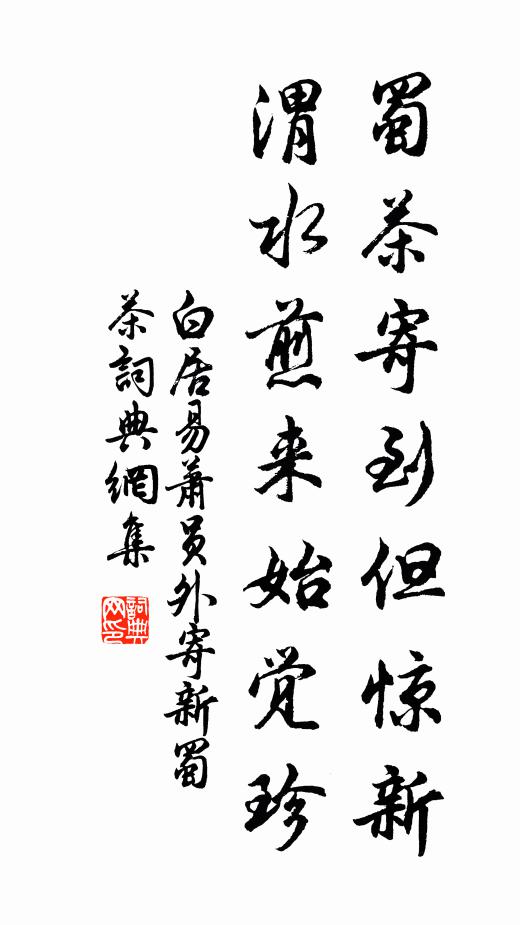 蜀茶寄到但惊新
渭水煎来始觉珍
白居易萧员外寄新蜀
茶詞典網集
詞典网印